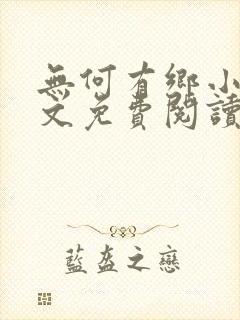 無何有鄉小
文免費閱讀
藍盔之戀